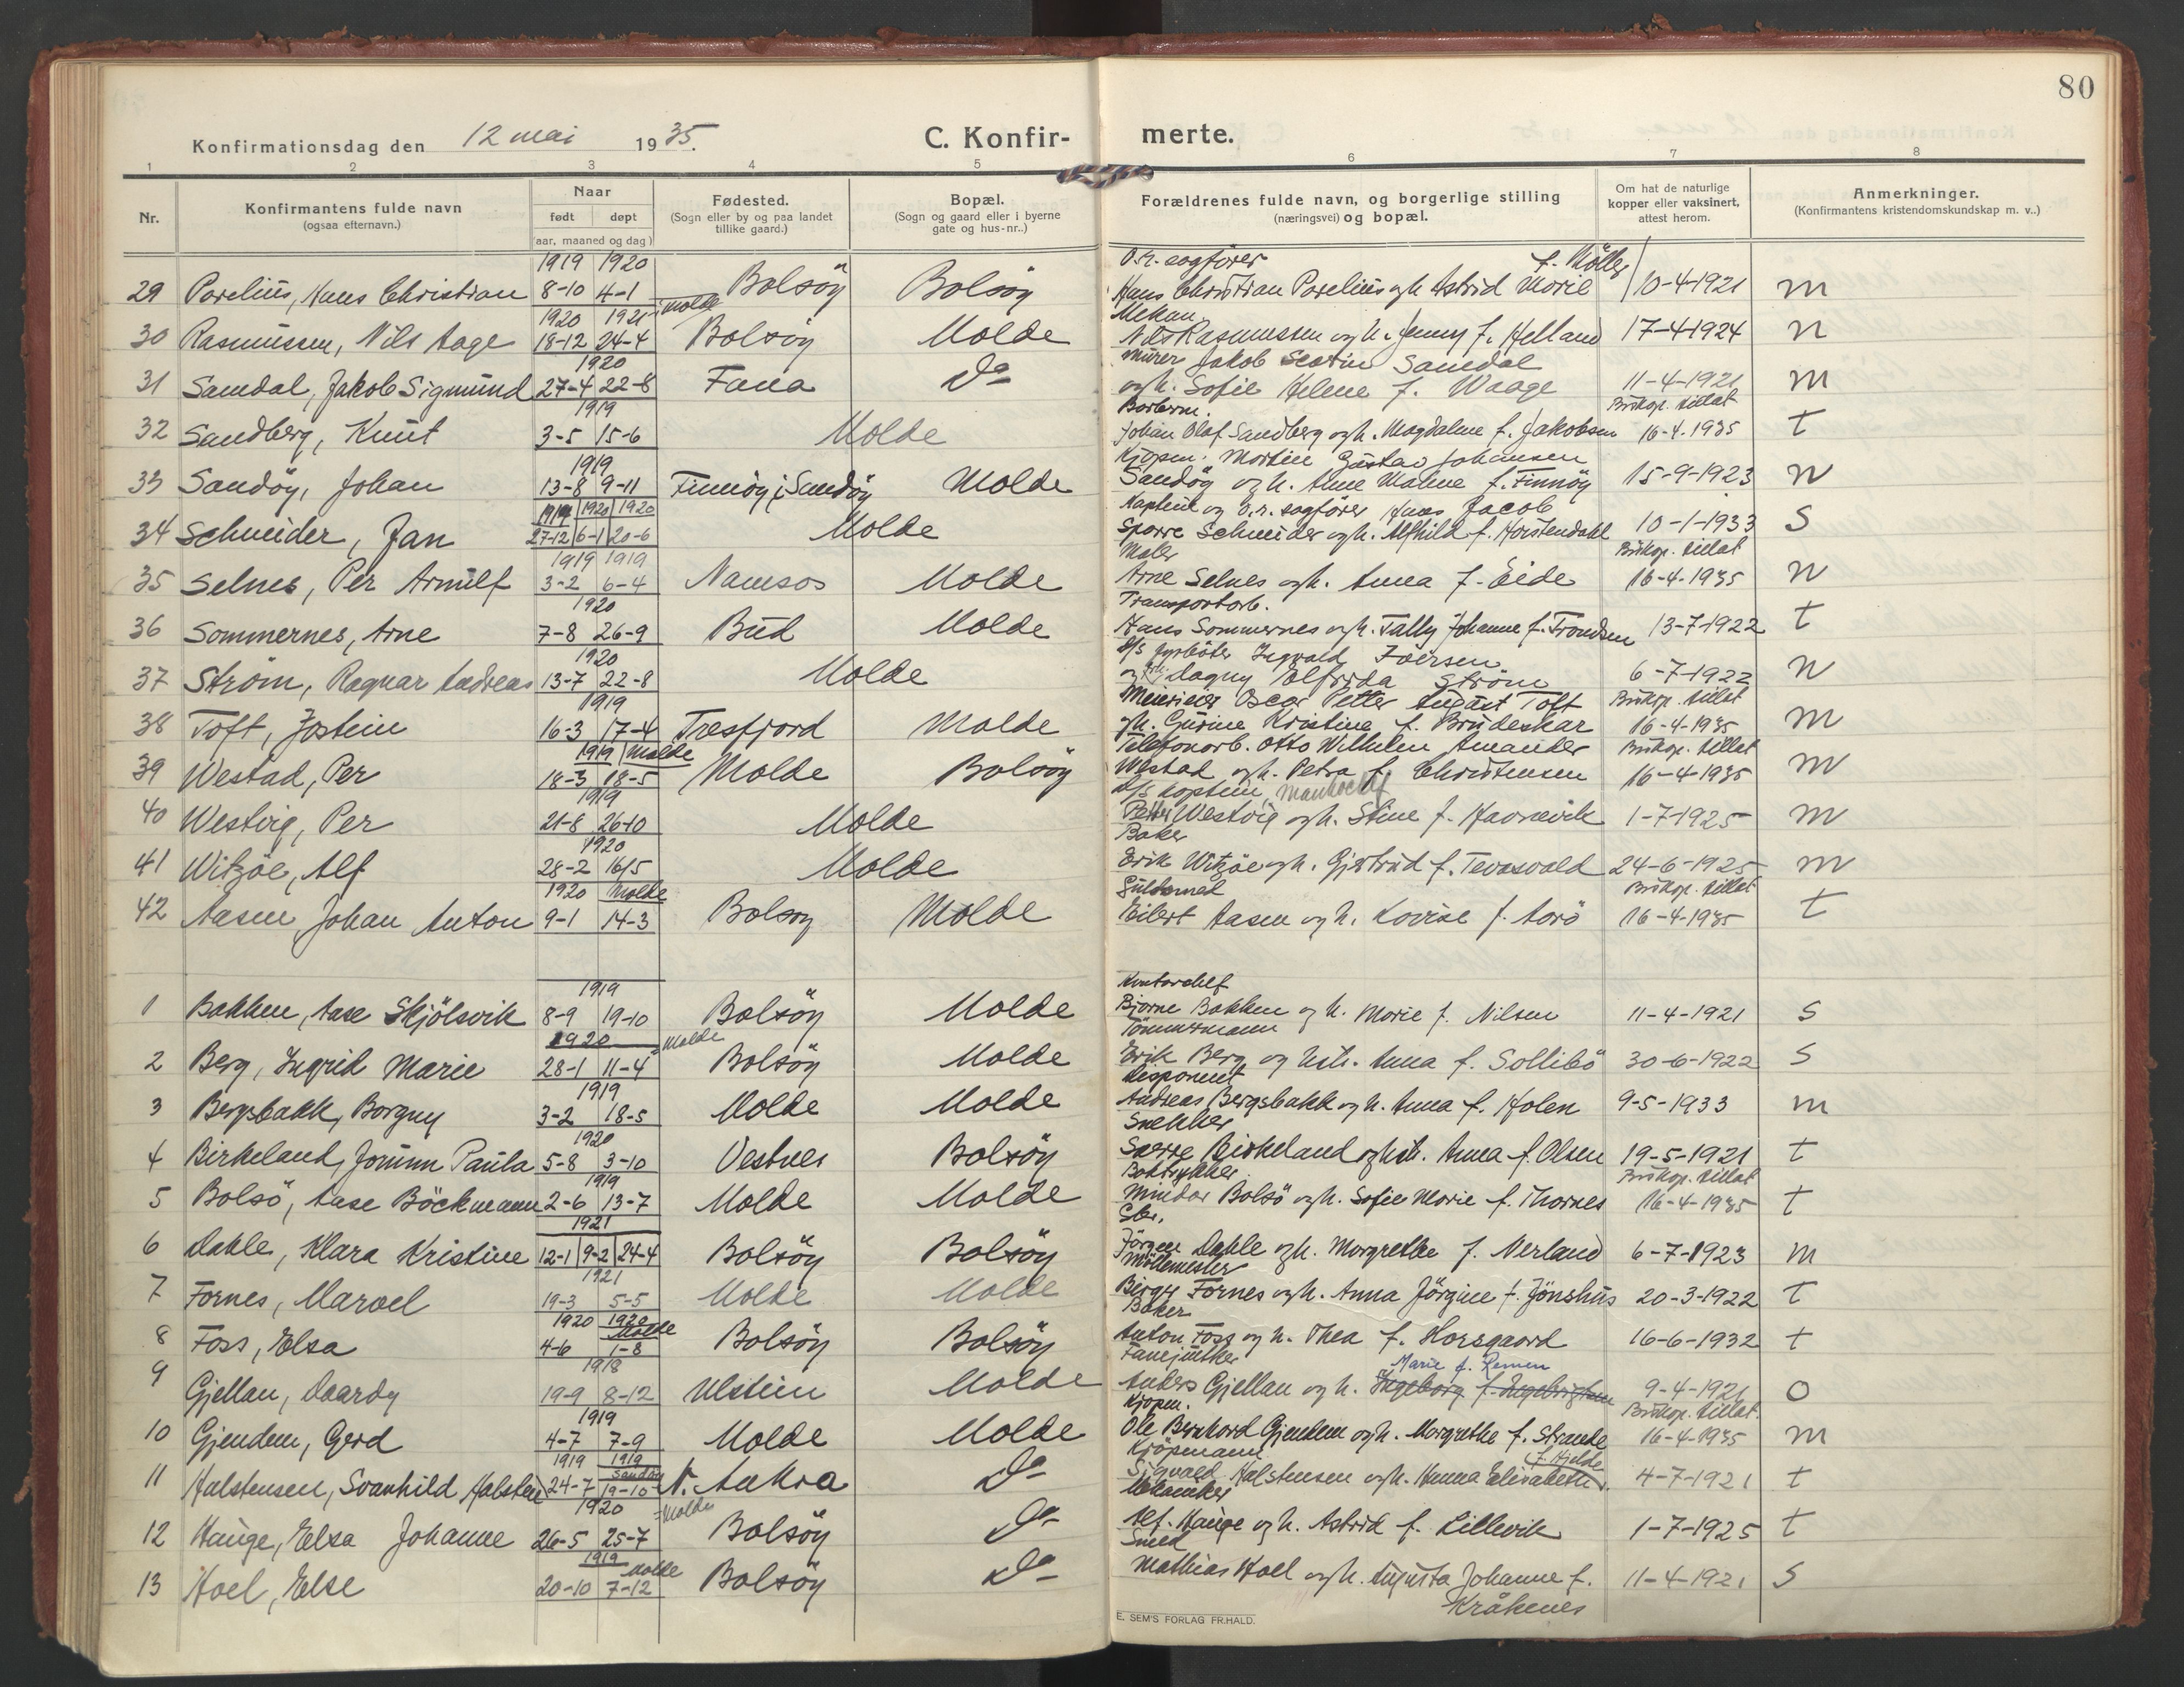 80
Konfirmationsdag den 12 mai 1935.
C. Konfirmerte.
1 2 3 4 5 6 7 8
Nr.
Konfirmantens fulde navn
(ogsaa efternavn.)
Naar
født døpt
(aar, maaned og dag)
Fødested.
(Sogn eller by og paa landet
tillike gaard.)
Bopæl.
(Sogn og gaard eller i byerne
gate og hus-nr..)
Forældrenes fulde navn, og borgerlige stilling
(næringsvei) og bopæl.
Om hat de naturlige
kopper eller vaksinert,
attest herom.
Anmerkninger.
(Konfirmantens kristendomskundskap m. v..)
1919 1920 O.r. sagfører f. Möller
29 Porelius, Hans Christian 8-10 4-1 Bolsöy Bolsöy Hans Christian Porelius og h. Astrid Marie 10-4-1921 m
1920 1921 Molde Mekan.
30 Rasmussen, Nils Aage 18-12 24-4 Bolsöy Molde Nils Rasmussen og h. Jenny f. Helland 17-4-1924 n
1920 Murer Jakob Samdal
31 Samdal, Jakob Sigmund 27-4 22-8 Fana Do og h. Sofie Helene f. Waage 11-4-1921 m
1919 Barberm. Biskop. tillat
32 Sandberg, Knut 3-5 15-6 Molde Johan Olaf Sandberg og h. Magdalene f. Jakobsen 16-4-1935 t
1919 Kjöpm. Martin Gustav Johansen
33 Sandöy, Johan 13-8 9-11 Finnöy i Sandöy Molde Sandöy og h. Anne Malene f. Finnöy 15-9-1923 n
1919 1920 1920 Kaptein og O.r. sagförer Hans Jacob
34 Schneider, Jan 27-12 6-1 20-6 Molde Sparre Schneider og h. Alfhild f. Horstendahl 10-1-1933 S
1919 1919 Maler Biskop. tillat
35 Selnes, Per Arnulf 3-2 6-4 Namsos Molde Arne Selnes og h. Anna f. Eide 16-4-1935 n
1920 Transportarb.
36 Sommernes, Arne 7-8 26-9 Bud Molde Hans Sommernes og h. Tally Johanne f. Frondsen 13-7-1922 t
1920 d/s fyrböter Ingvald Iversen
37 Ström, Ragnar Andreas 13-7 22-8 Molde og Dagny Elfrida Ström 6-7-1922 n
1919 Meierieier Oscar Petter August Toft Biskop. tillat
38 Toft, Jostein 16-3 17-4 Tresfjord Molde og h. Gurine Kristine f. Brudeskar 16-4-1935 m
1919 Molde Telefonarb. Otto Wilhelm Amandus Biskop. tillat
39 Westad, Per 18-3 18-5 Molde Bolsöy Westad og h. Petra f. Christensen 16-4-1935 m
1919 d/s kaptein
40 Westvig, Per 21-8 26-10 Molde Petter Westvig og h. Stine f. Havnevik 1-7-1925 m
1920 Baker
41 Witzöe, Alf 28-2 16/5 Molde Erik Witzöe og h. Gjertrud f. Tevasvold 24-6-1925 m
1920 Molde Guldsmed Biskop. tillat
42 Aasen, Johan Anton 9-1 14-3 Bolsöy Molde Eilert Aasen og h. Lovise f. Aarö 16-4-1935 t
1919 Kontorchef
1 Bakken, Aase Skjölsvik 8-9 19-10 Bolsöy Molde Bjarne Bakken og h. Marie f. Nilsen 11-4-1921 S
1920 Molde Tömmermann
2 Berg, Ingrid Marie 28-1 11-4 Bolsöy Molde Erik Berg og hstr. Anna f. Sollibö 30-6-1922 S
1919 Disponent
3 Bergsbakk, Borgny 3-2 18-5 Molde Molde Andreas Bergsbakk og h. Anna f. Holen 9-5-1933 m
1920 Snekker
4 Birkeland, Jorunn Paula 5-8 3-10 Vestnes Bolsöy Sverre Birkeland og hstr. Anna f. Olsen 19-5-1921 t
1919 Boktrykker Biskop. tillat
5 Bolsö, Aase Böckmann 2-6 13-7 Molde Molde Mindor Bolsö og h. Sofie Marie f. Thornes 16-4-1935 t
1921 Gbr.
6 Dahle, Klara Kristine 12-1 9-2 24-4 Bolsöy Bolsöy Jörgen Dahle og h. Margrethe f. Nerland 6-7-1923 m
1921 Möllemester
7 Fornes, Marvel 19-3 5-5 Molde Molde Birger Fornes og h. Anna Jörgine f. Jönshus 20-3-1922 t
1920 1920 Molde Baker
8 Foss, Elsa 4-6 1-8 Bolsöy Bolsöy Anton Foss og h. Thea f. Horsgaard 16-6-1932 t
1918 Fanejunker Marie f. Remen
9 Gjellan, Daardy 19-9 8-12 Ulstein Molde Anders Gjellan og h. Ingeborg f. Ingebrigtsen 9-4-1921 O
1919 Kjöpm. Biskop. tillat.
10 Gjendem, Gerd 4-7 7-9 Molde Molde Ole Bernhard Gjendem og h. Margrethe f. Strande 16-4-1935 m
1919 1919 Sandöy Kjöpmann f. Hjelde
11 Halstensen, Svanhild Halstein 24-7 19-10 N. Aukra Do Sigvald Halstensen og h. Hanna Elisabeth 4-7-1921 t
1920 Molde Mekaniker
12 Hauge, Elsa Johanne 26-5 25-7 Bolsöy Do Alf. Hauge og h. Astrid f. Lillevik 1-7-1925 t
1919 Molde Smed
13 Hoel, Else 20-10 7-12 Bolsöy Do Mathias Hoel og h. Augusta Johanne f. 11-4-1921 S
Kråkenes
E. SEM'S FORLAG FR.HALD.